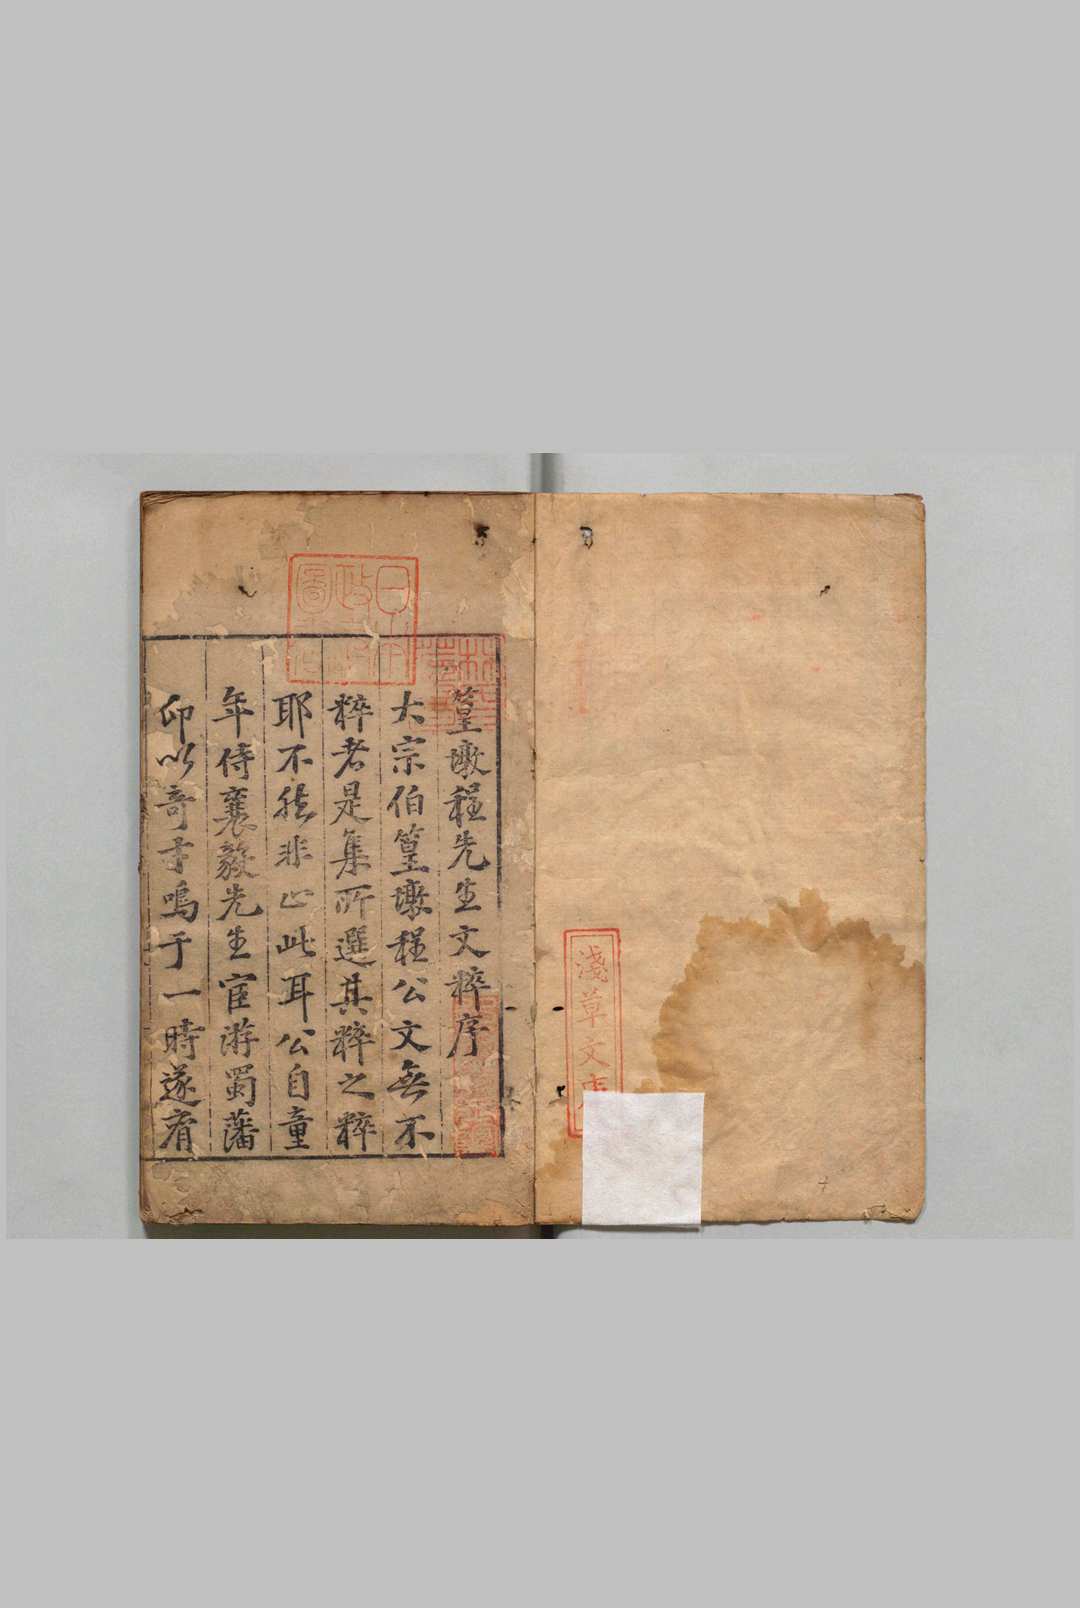 淺草文庫
篁墩程先生文粹序
大宗伯篁墩程公文無不
粹者是集所選其粹之粹
耶不然非止此耳公自童
年侍襄毅先生宦游蜀藩
卬以奇才鳴于一時遂有
日本政府圖書
林氏藏書